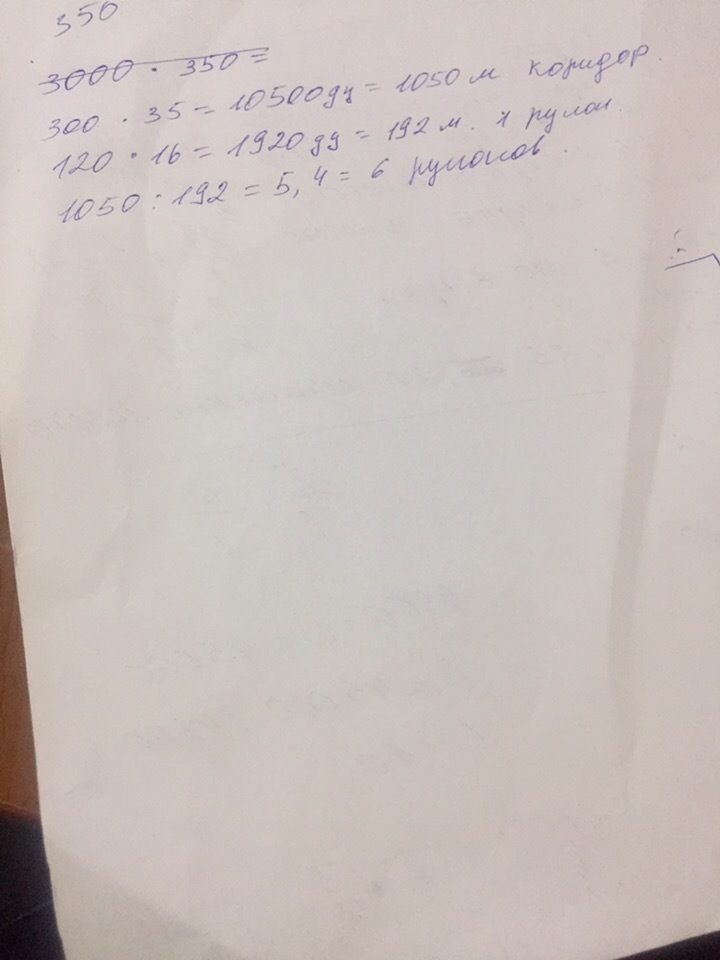 350
3000 · 350 =
300 · 35 = 10500 дц = 1050 м коридор.
120 · 16 = 1920 дц = 192 м. 1 рулон.
1050 : 192 = 5,4 = 6 рулонов.